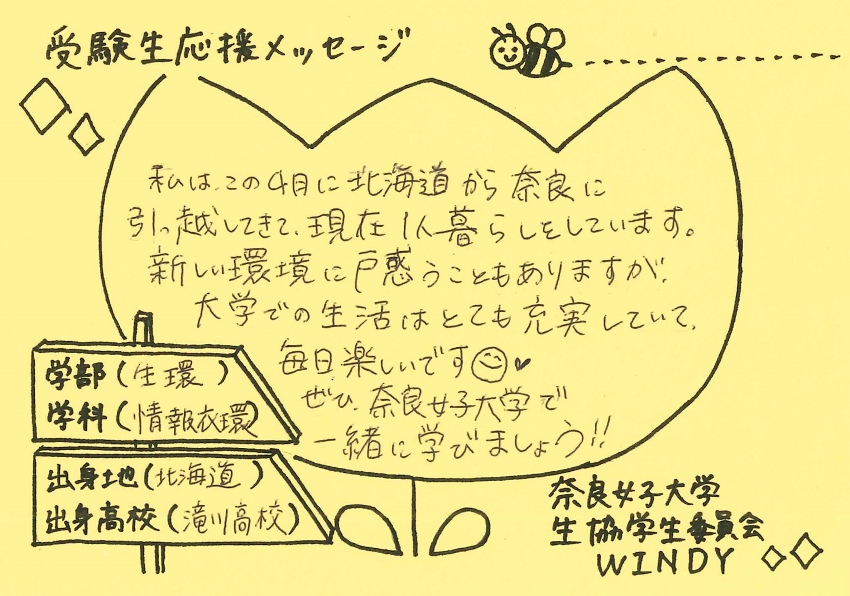 受験生応援メッセージ
私は、この4月に北海道から奈良に
引っ越してきて、現在1人暮らしをしています。
新しい環境に戸惑うこともありますが、
大学での生活はとても充実していて、
毎日楽しいです
ぜひ、奈良女子大学で
一緒に学びましょう!!
学部(生環)
学科(情報衣環)
出身地(北海道)
出身高校(滝川高校)
奈良女子大学
生協学生委員会
WINDY